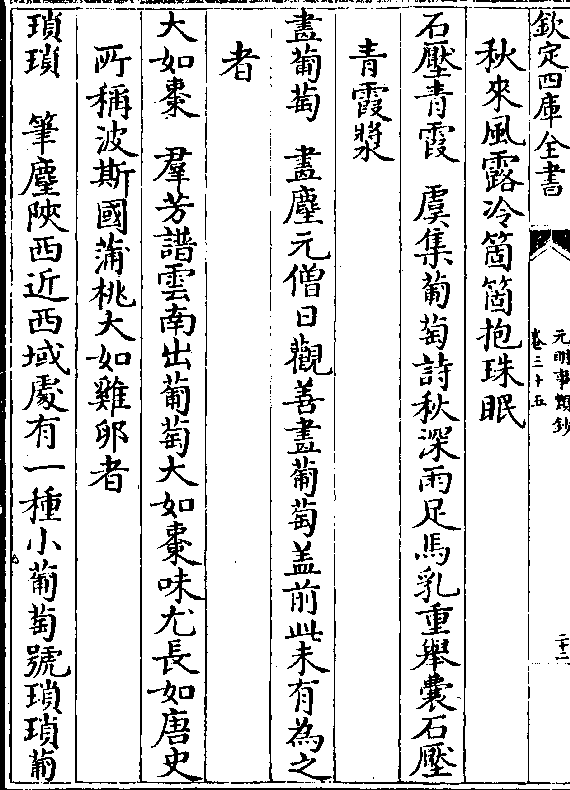 欽定四庫全書
元明事類鈔
卷三十五
二十二
秋來風露冷箇箇抱珠眠
石壓青霞　虞集葡萄詩秋深雨足馬乳重舉囊石壓
青霞漿
畫葡萄　畫麈元僧日觀善畫葡萄盖前此未有為之
者
大如棗　羣芳譜雲南出葡萄大如棗味尤長如唐史
所稱波斯國蒲桃大如雞卵者
瑣瑣　筆麈陜西近西域處有一種小葡萄號瑣瑣葡